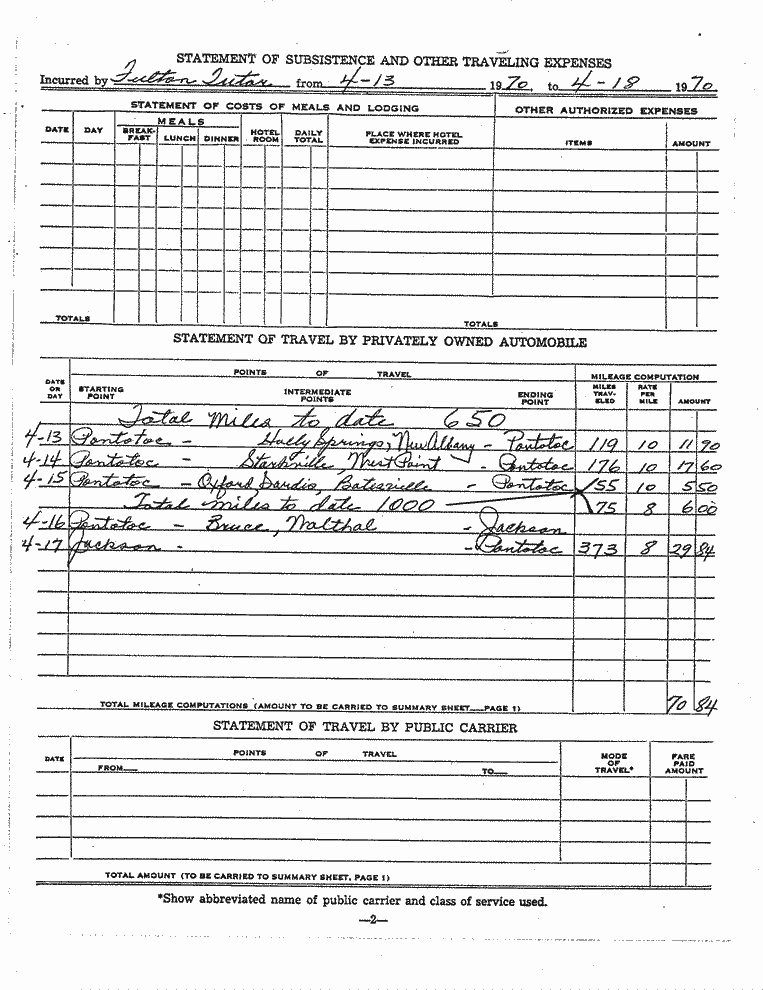 STATEMENT OF SUBSISTENCE AND OTHER TRAVELING EXPENSES
Incurred by Fulton Tutor from 4-13 1970. to 4-18 1970
STATEMENT OF COSTS OF MEALS AND LODGING OTHER AUTHORIZED EXPENSES
DATE DAY MEALS BREAK-FAST LUNCH DINNER HOTEL ROOM DAILY TOTAL PLACE WHERE HOTEL EXPENSE INCURRED ITEMS AMOUNT
TOTALS TOTALS
STATEMENT OF TRAVEL BY PRIVATELY OWNED AUTOMOBILE
POINTS OF TRAVEL MILEAGE COMPUTATION
DATE OR DAY STARTING POINT INTERMEDIATE POINTS ENDING POINT MILES TRAV-ELED RATE PER MILE AMOUNT
Total Miles to date 650
4-13 Pontotoc - Holly Springs, New Albany - Pontotoc 119 10 11 90
4-14 Pontotoc - Starkville, West Point - Pontotoc 176 10 17 60
4-15 Pontotoc - Oxford Sardis, Batesville - Pontotoc 55 10 5 50
Total miles to date 1000 75 8 6 00
4-16 Pontotoc - Bruce, Walthal - Jackson
4-17 Jackson - - Pontotoc 373 8 29 84
TOTAL MILEAGE COMPUTATIONS (AMOUNT TO BE CARRIED TO SUMMARY SHEET__PAGE 1) 70 84
STATEMENT OF TRAVEL BY PUBLIC CARRIER
DATE POINTS OF TRAVEL MODE OF TRAVEL* FARE PAID AMOUNT
FROM__ TO__
TOTAL AMOUNT (TO BE CARRIED TO SUMMARY SHEET, PAGE 1)
*Show abbreviated name of public carrier and class of service used.
—2—